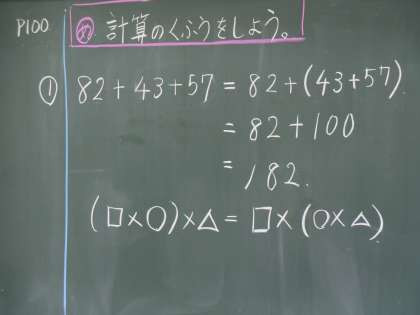 P100
め 計算のくふうをしよう。
① 82+43+57 = 82+(43+57)
= 82+100
= 182.
(□×○)×△= □×(○×△)